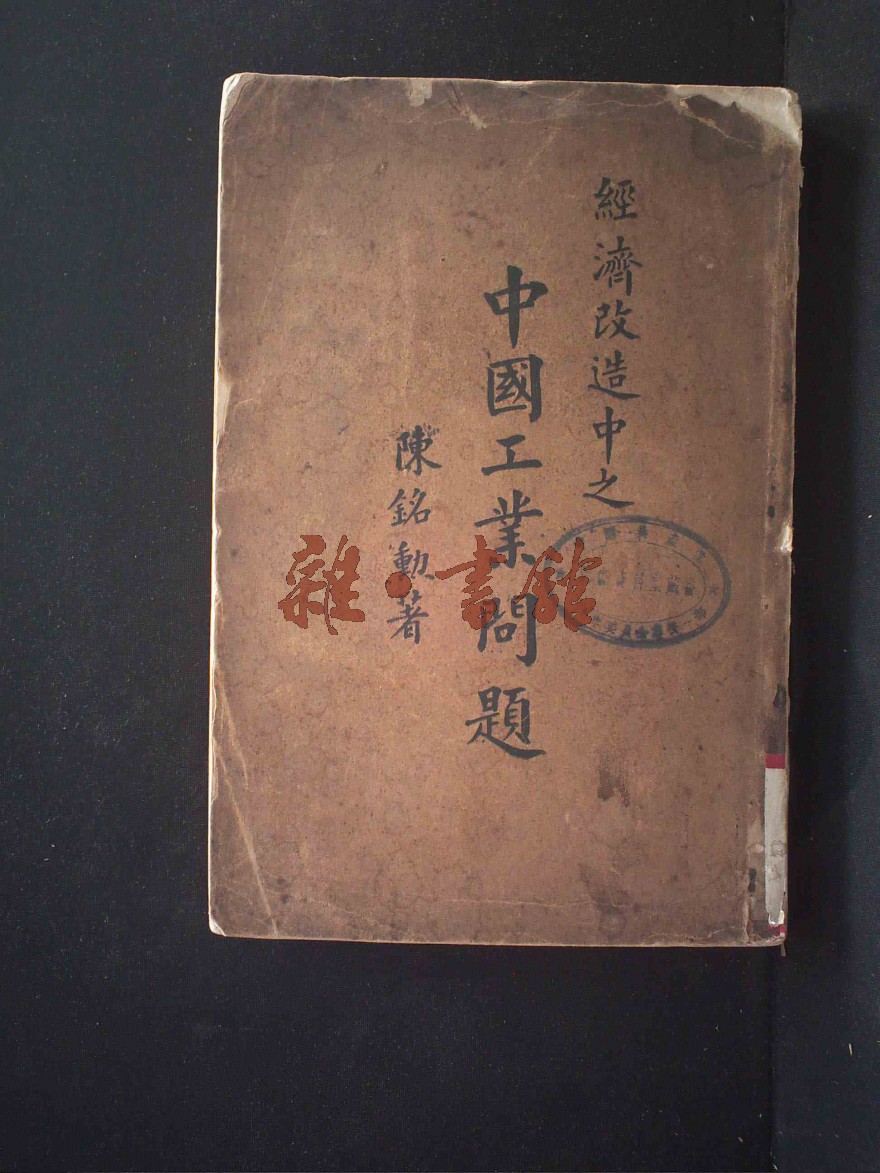 經濟改造中之
中國工業問題
陳銘勳著
雜·書館